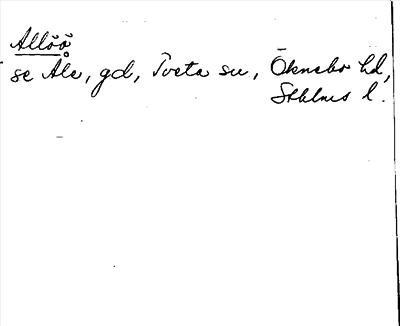 Allöö
se Åle, gd, Tveta sn, Öknebo hd,
Sthlms l.